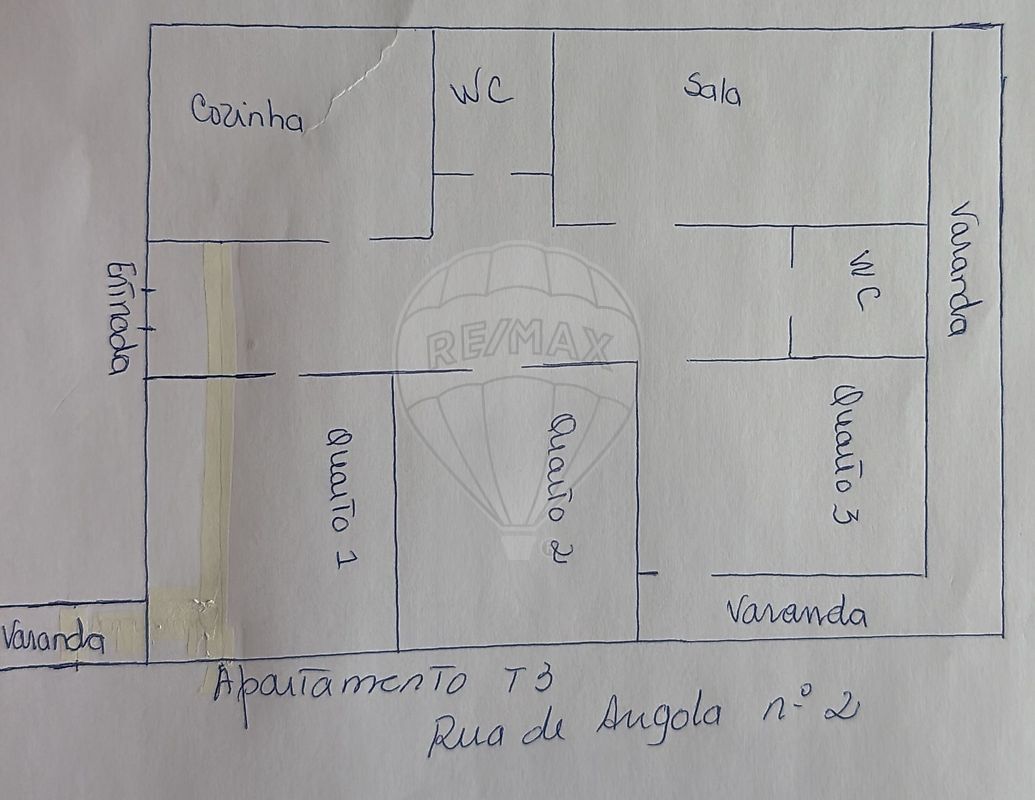 Cozinha
WC
Sala
Varanda
Entrada
WC
RE/MAX
Quarto 1
Quarto 2
Quarto 3
Varanda
Varanda
Apartamento T3
Rua de Angola nº 2